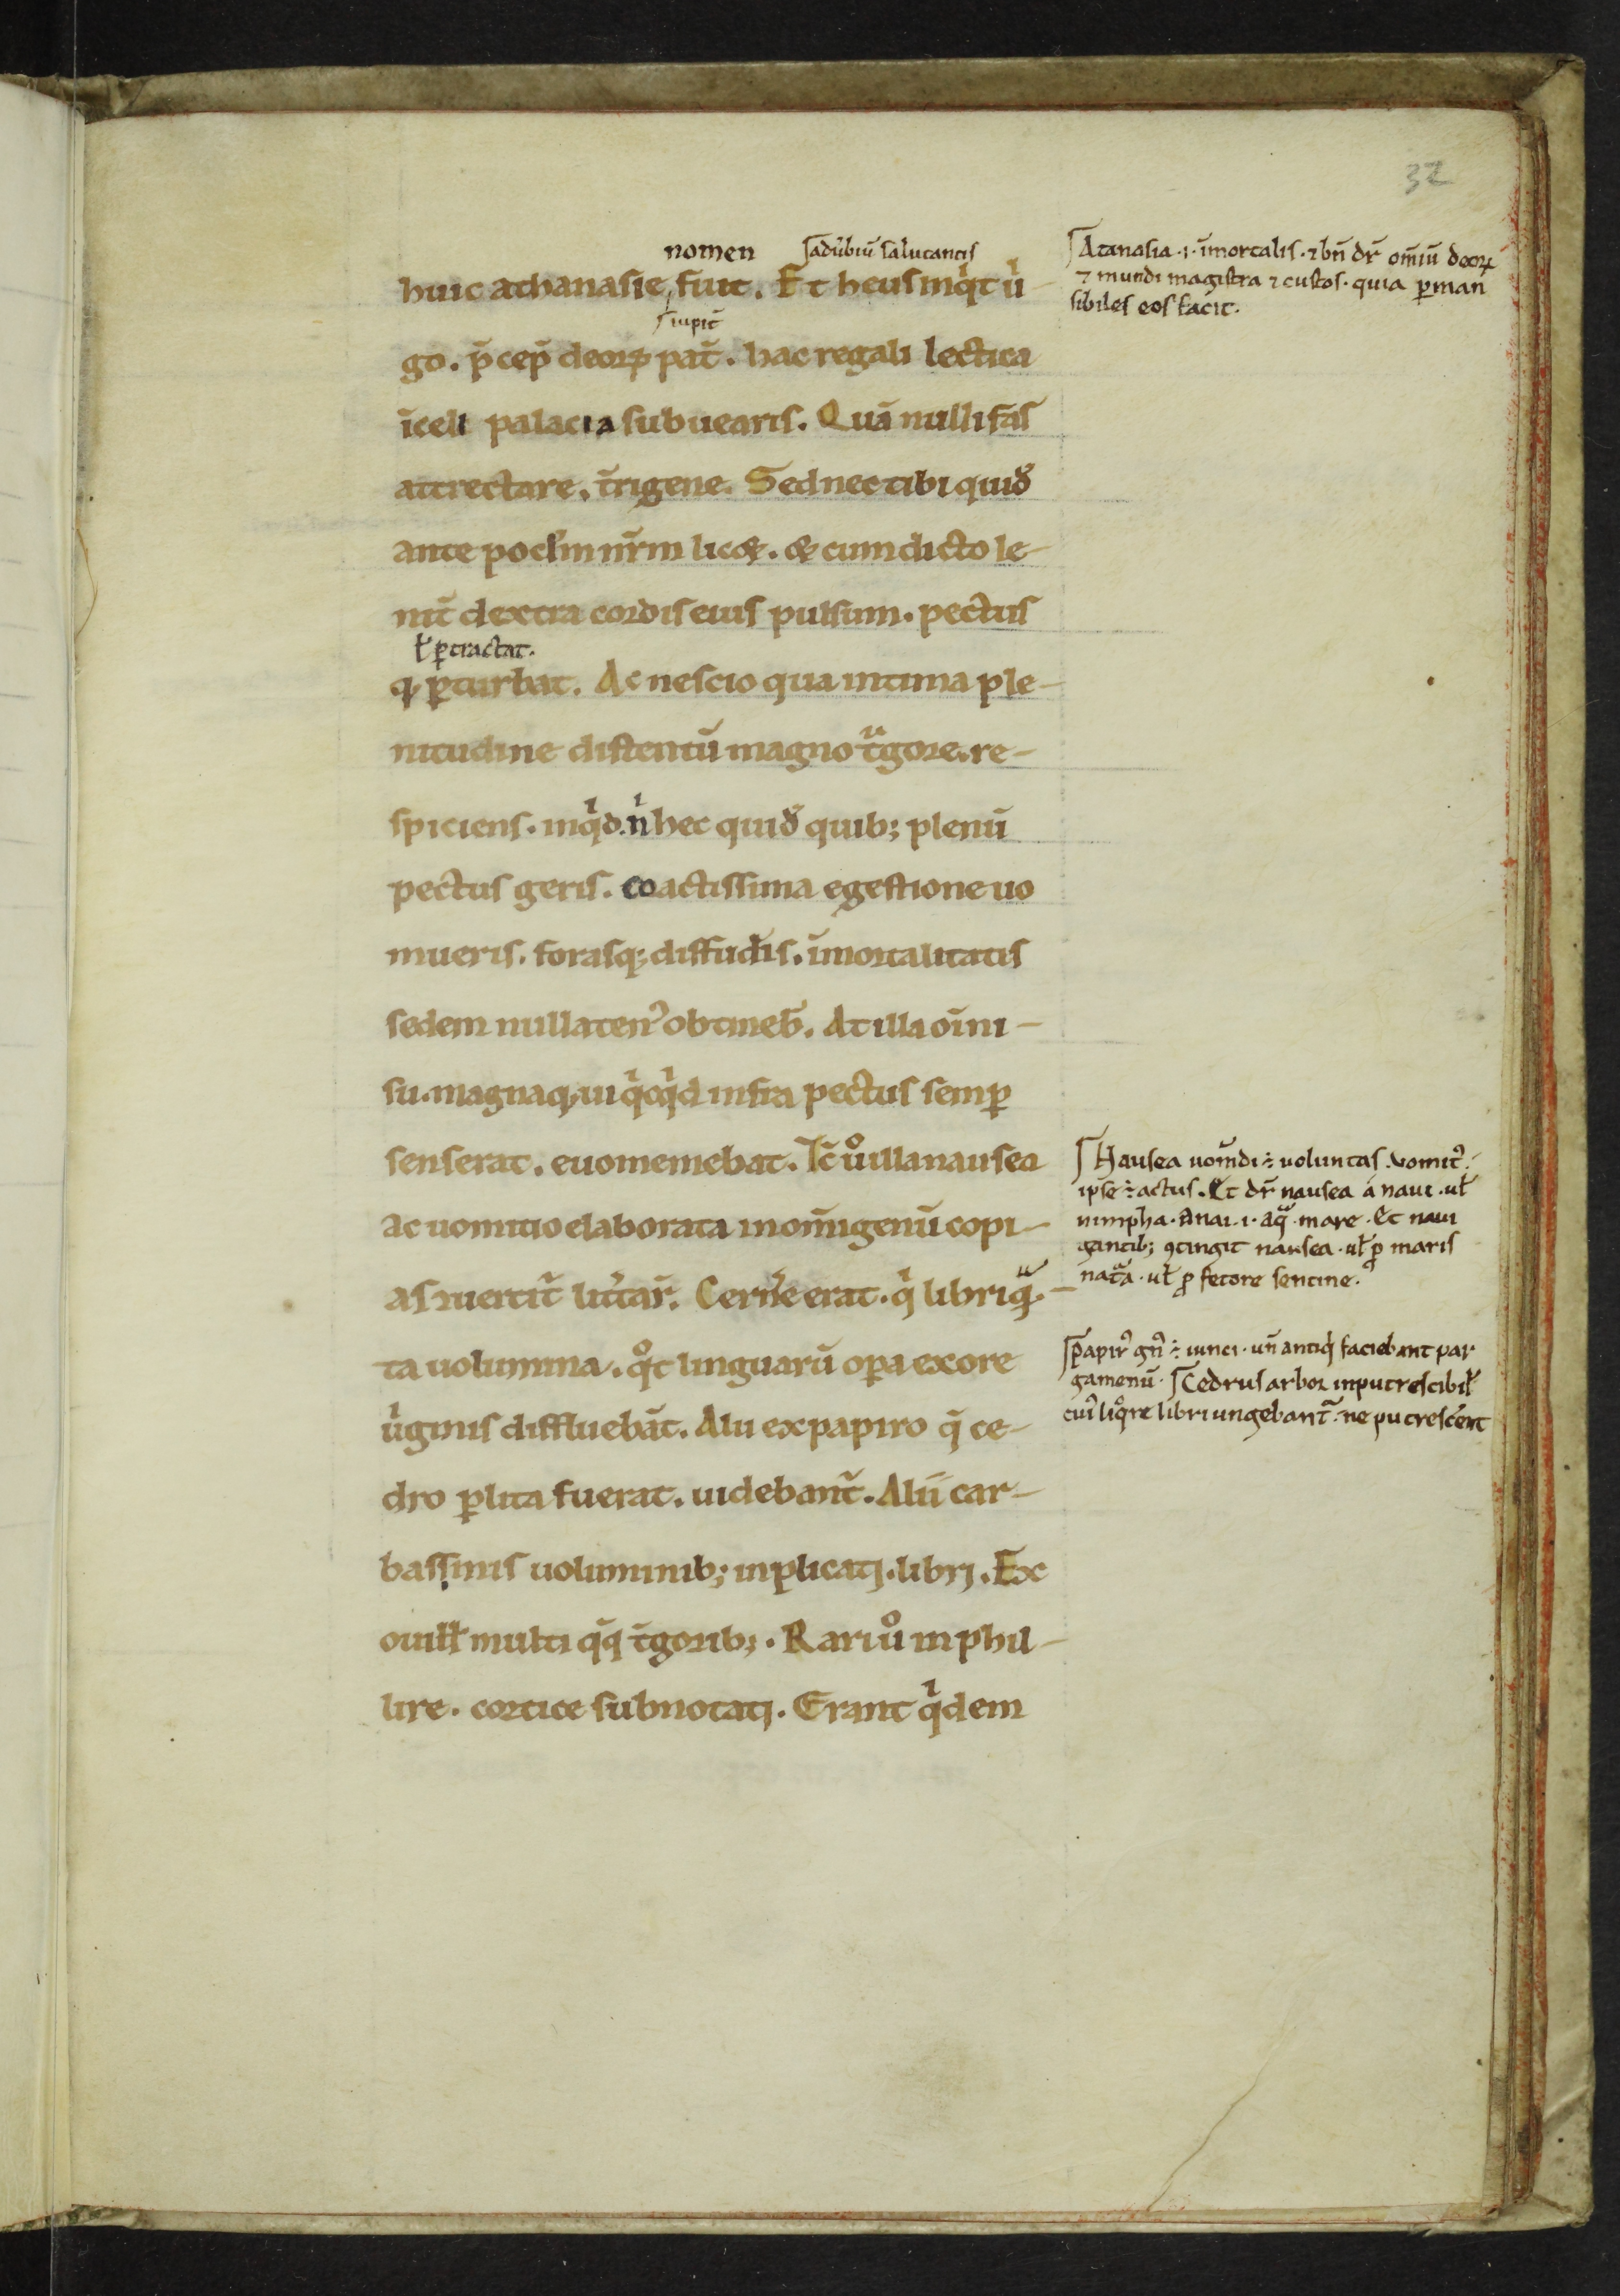 32
nomen ſadűbiū salutantis
huic athanasie fuit. Et heus inq̍t u̍
ſiupit̄
go. p̄cep̄ deoꝝ pat̄. hac regali lectica
īceli palacia subuearis. Quā nulli fas
attrectare. t̄rigene. Sed nec tibi quid̄
ante pocl̄m nr̄m licet. et cum dicto le-
nit̄ dextra cordis eius pulsum. pectus
ł ꝑtractat.
qꝫ ꝑturbat. Ac nescio qua intima ple-
nitudine distentū magno t̄gore. re-
spiciens. inq̍d. n̍ hec quid̄ quibꝫ plenū
pectus geris. coactissima egestione uo
mueris. forasqꝫ diffudis. īmortalitatis
sedem nullatenꝰ obtineb̄. At illa oīni-
su. magnaqꝫ ui q̍cq̍d infra pectus semꝑ
senserat. euomemebat. Tc̄ uͦ illa nausea
ac uomitio elaborata in om̄igenū copi-
as uertit̄ litt̄ar̄. Cern̄e erat. q̍ libri q̄-
ta uolumina. qͦt linguarū oꝑa ex ore
u̍ginis diffluebāt. Alii ex papiro q̄ ce-
dro ꝑlita fuerat. uidebant̄. Alii car-
bassinis uoluminibꝫ inplicati. libri. Ex
ouill̄ multi q̄qꝫ t̄goribꝫ. Rari uͦ in phil-
lire. cortice subnotati. Erant q̍dem
ſAtanasia .i. īmortalis. ⁊ bn̄ dr̄ om̄iū deoꝝ
⁊ mundi magistra ⁊ custos. quia ꝑman
sibiles eos facit.
ſNausea uom̄di ÷ uoluntas. vomitꝰ
ipse ÷ actus. Et dr̄ nausea a naui. uł
nimpha. Anai .i. aq̄ mare. Et naui
gantibꝫ ꝯtingit nausea. uł ꝓ maris
nat̄a. uł ꝓ fetore sentine.
ſPapirꝰ gn̄ ÷ iunci. un̄ antiq̍ faciebant par
gamenū. ſCedrus arbor inputrescibił
cuiꝰ liqͦre libri ungebant̄. ne putresc̄ent